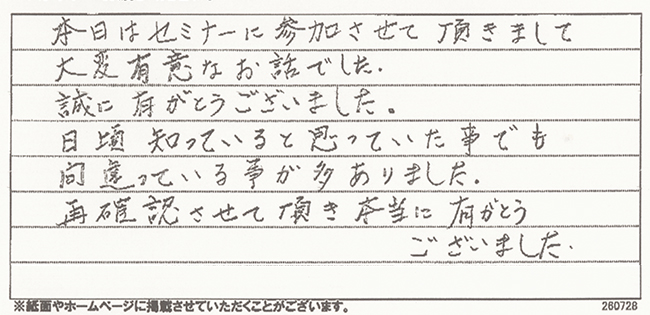 本日はセミナーに参加させて頂きまして
大変有意なお話でした.
誠に有がとうございました。
日頃知っていると思っていた事でも
間違っている事が多ありました.
再確認させて頂き本当に有がとう
ございました.
※紙面やホームページに掲載させていただくことがございます。
260728